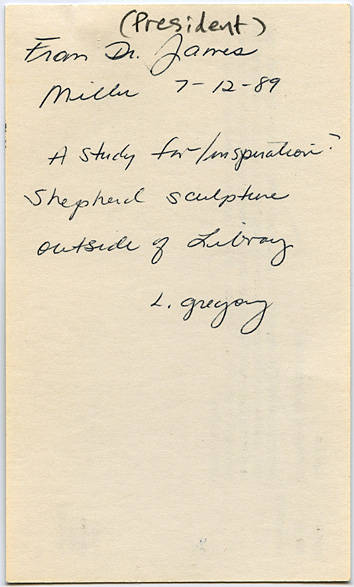 (President)
From Dr. James
Miller 7-12-89
A study for/inspiration?
Shepherd sculpture
outside of Library
L. gregory